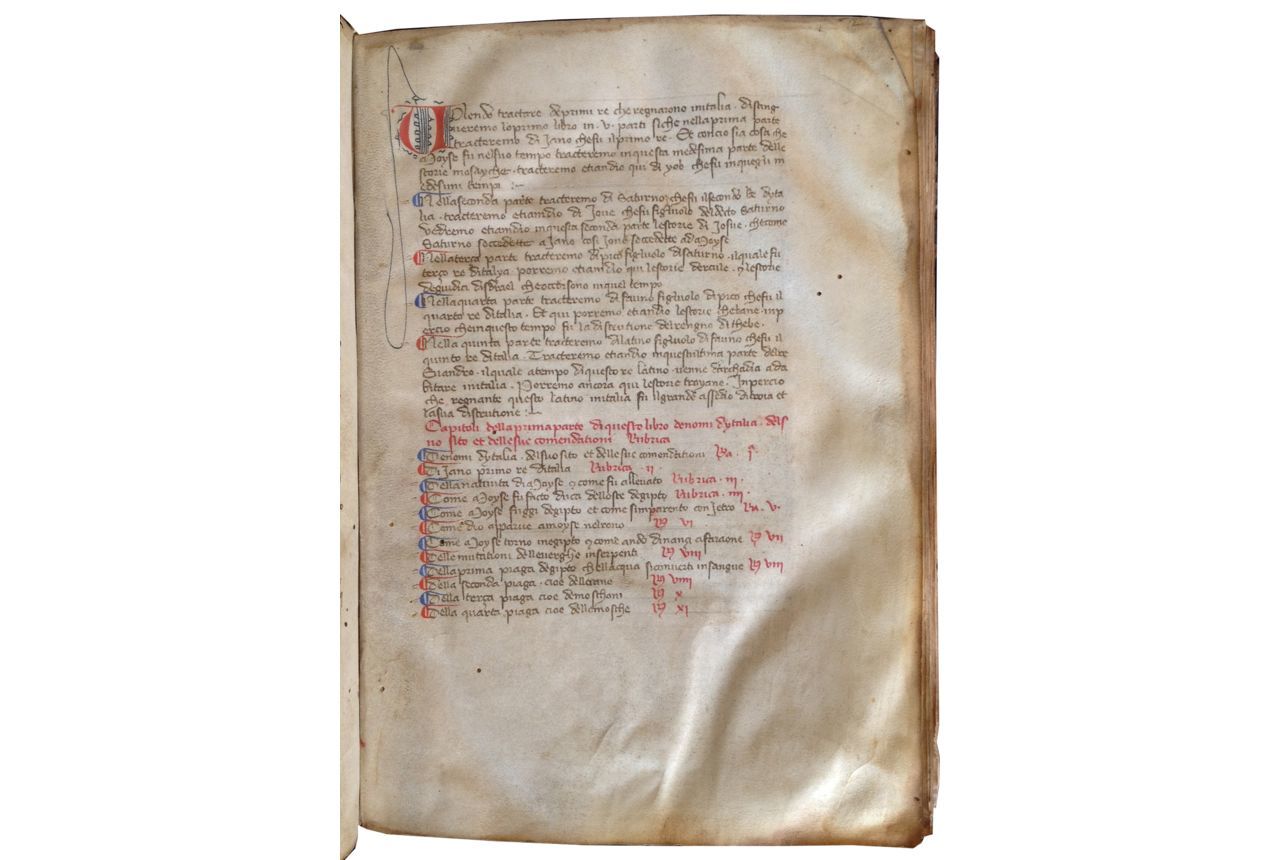 Volendo tractare de primi re che regnarono in italia . disting
ueremo lo primo libro in . v . parti si che nella prima parte
tracteremo di Jano che fu il primo re . Et concio sia cosa che
Moyse fu nel suo tempo tracteremo in questa medesima parte delle
storie mosayche . tracteremo etiandio qui di yob che fu in quegli m
edesimi tempi :
Nella seconda parte tracteremo di Saturno che fu il secondo Re dyta
lia . tracteremo etiandio di Joue che fu figluolo del decto Saturno
Vedremo etiandio in questa seconda parte le storie di Josue . che come
Saturno soccedette a Jano cosi Josue soccedette ad Moyse
Nella terça parte tracteremo di pico figluolo di saturno . il quale fu
terço re di talya porremo etiandio qui le storie dercule . et le storie
de giudici disdrael che occorsono in quel tempo
Nella quarta parte tracteremo di fauno figluolo di pico che fu il
quarto re ditalia . Et qui porremo etiandio le storie thebane . inp
ercio che in questo tempo fu la distrutione del rengno di thebe .
Nella quinta parte tracteremo di latino figluolo di fauno che fu il
quinto re ditalia . Tracteremo etiandio in quest ultima parte del re
Euandro . il quale a tempo di questo re latino . uenne darchadia ad a
bitare in italia . Porremo ancora qui le storie troyane . Inpercio
che regnante questo latino in italia fu il grande assedio di troia et
la sua distrutione :
Capitoli della prima parte di questo libro de nomi dytalia . del s
uo sito et delle sue comendationi Rubrica
De nomi dytalia . del suo sito et delle sue comendationi Ra . i .
Di Jano primo re ditalia Rubrica ii .
Della natiuita di Moyse et come fu alleuato Rubrica . iii .
Come Moyse fu facto duca delloste degipto Rubrica . iiii .
Come Moyse fuggi degipto et come simparento con Jetro Ru . v .
Come dio apparue a moyse nel rono R VI
Come Moyse torno in egipto et come ando dinanzi a faraone R VII
Delle mutationi delle verghe in serpenti R VIII
Della prima piaga degipto che llacqua si conuerti in sangue R VIII
Della seconda piaga . cioe delle rane R VIIII
Della terça piaga cioe de moschoni R X
Della quarta piaga cioe delle mosche R XI